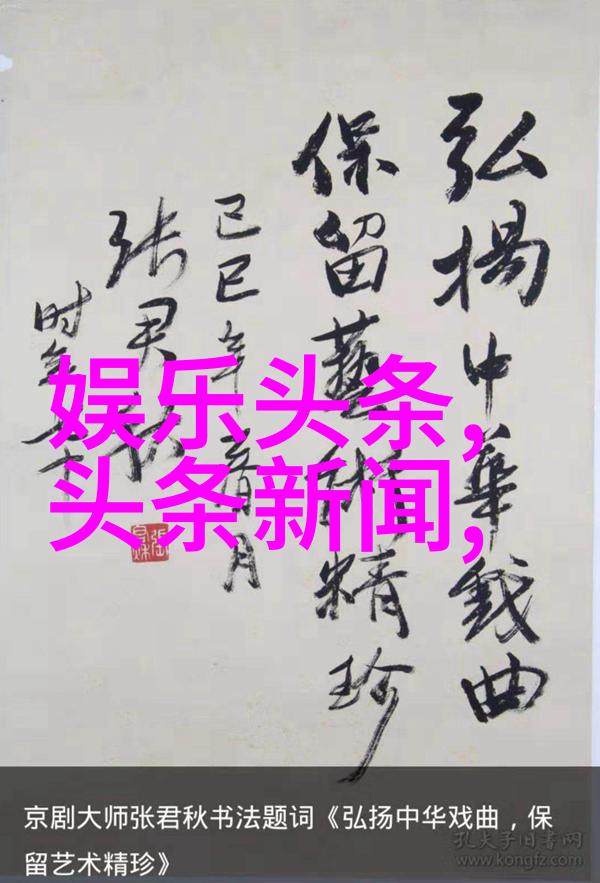 弘揚中華戲曲
保留藝術精珍
己巳年春月
张君秋
时年
娱乐头条,
头条新闻,
京剧大师张君秋书法题词《弘扬中华戏曲，保
留艺术精珍》
孔夫子旧书网
www.kongfz.com